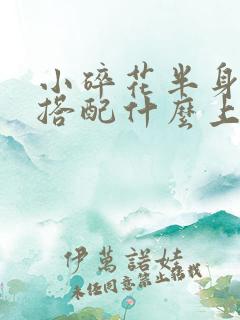 小碎花半身
搭配什麼上
伊萬諾娃
未经同意禁止转载